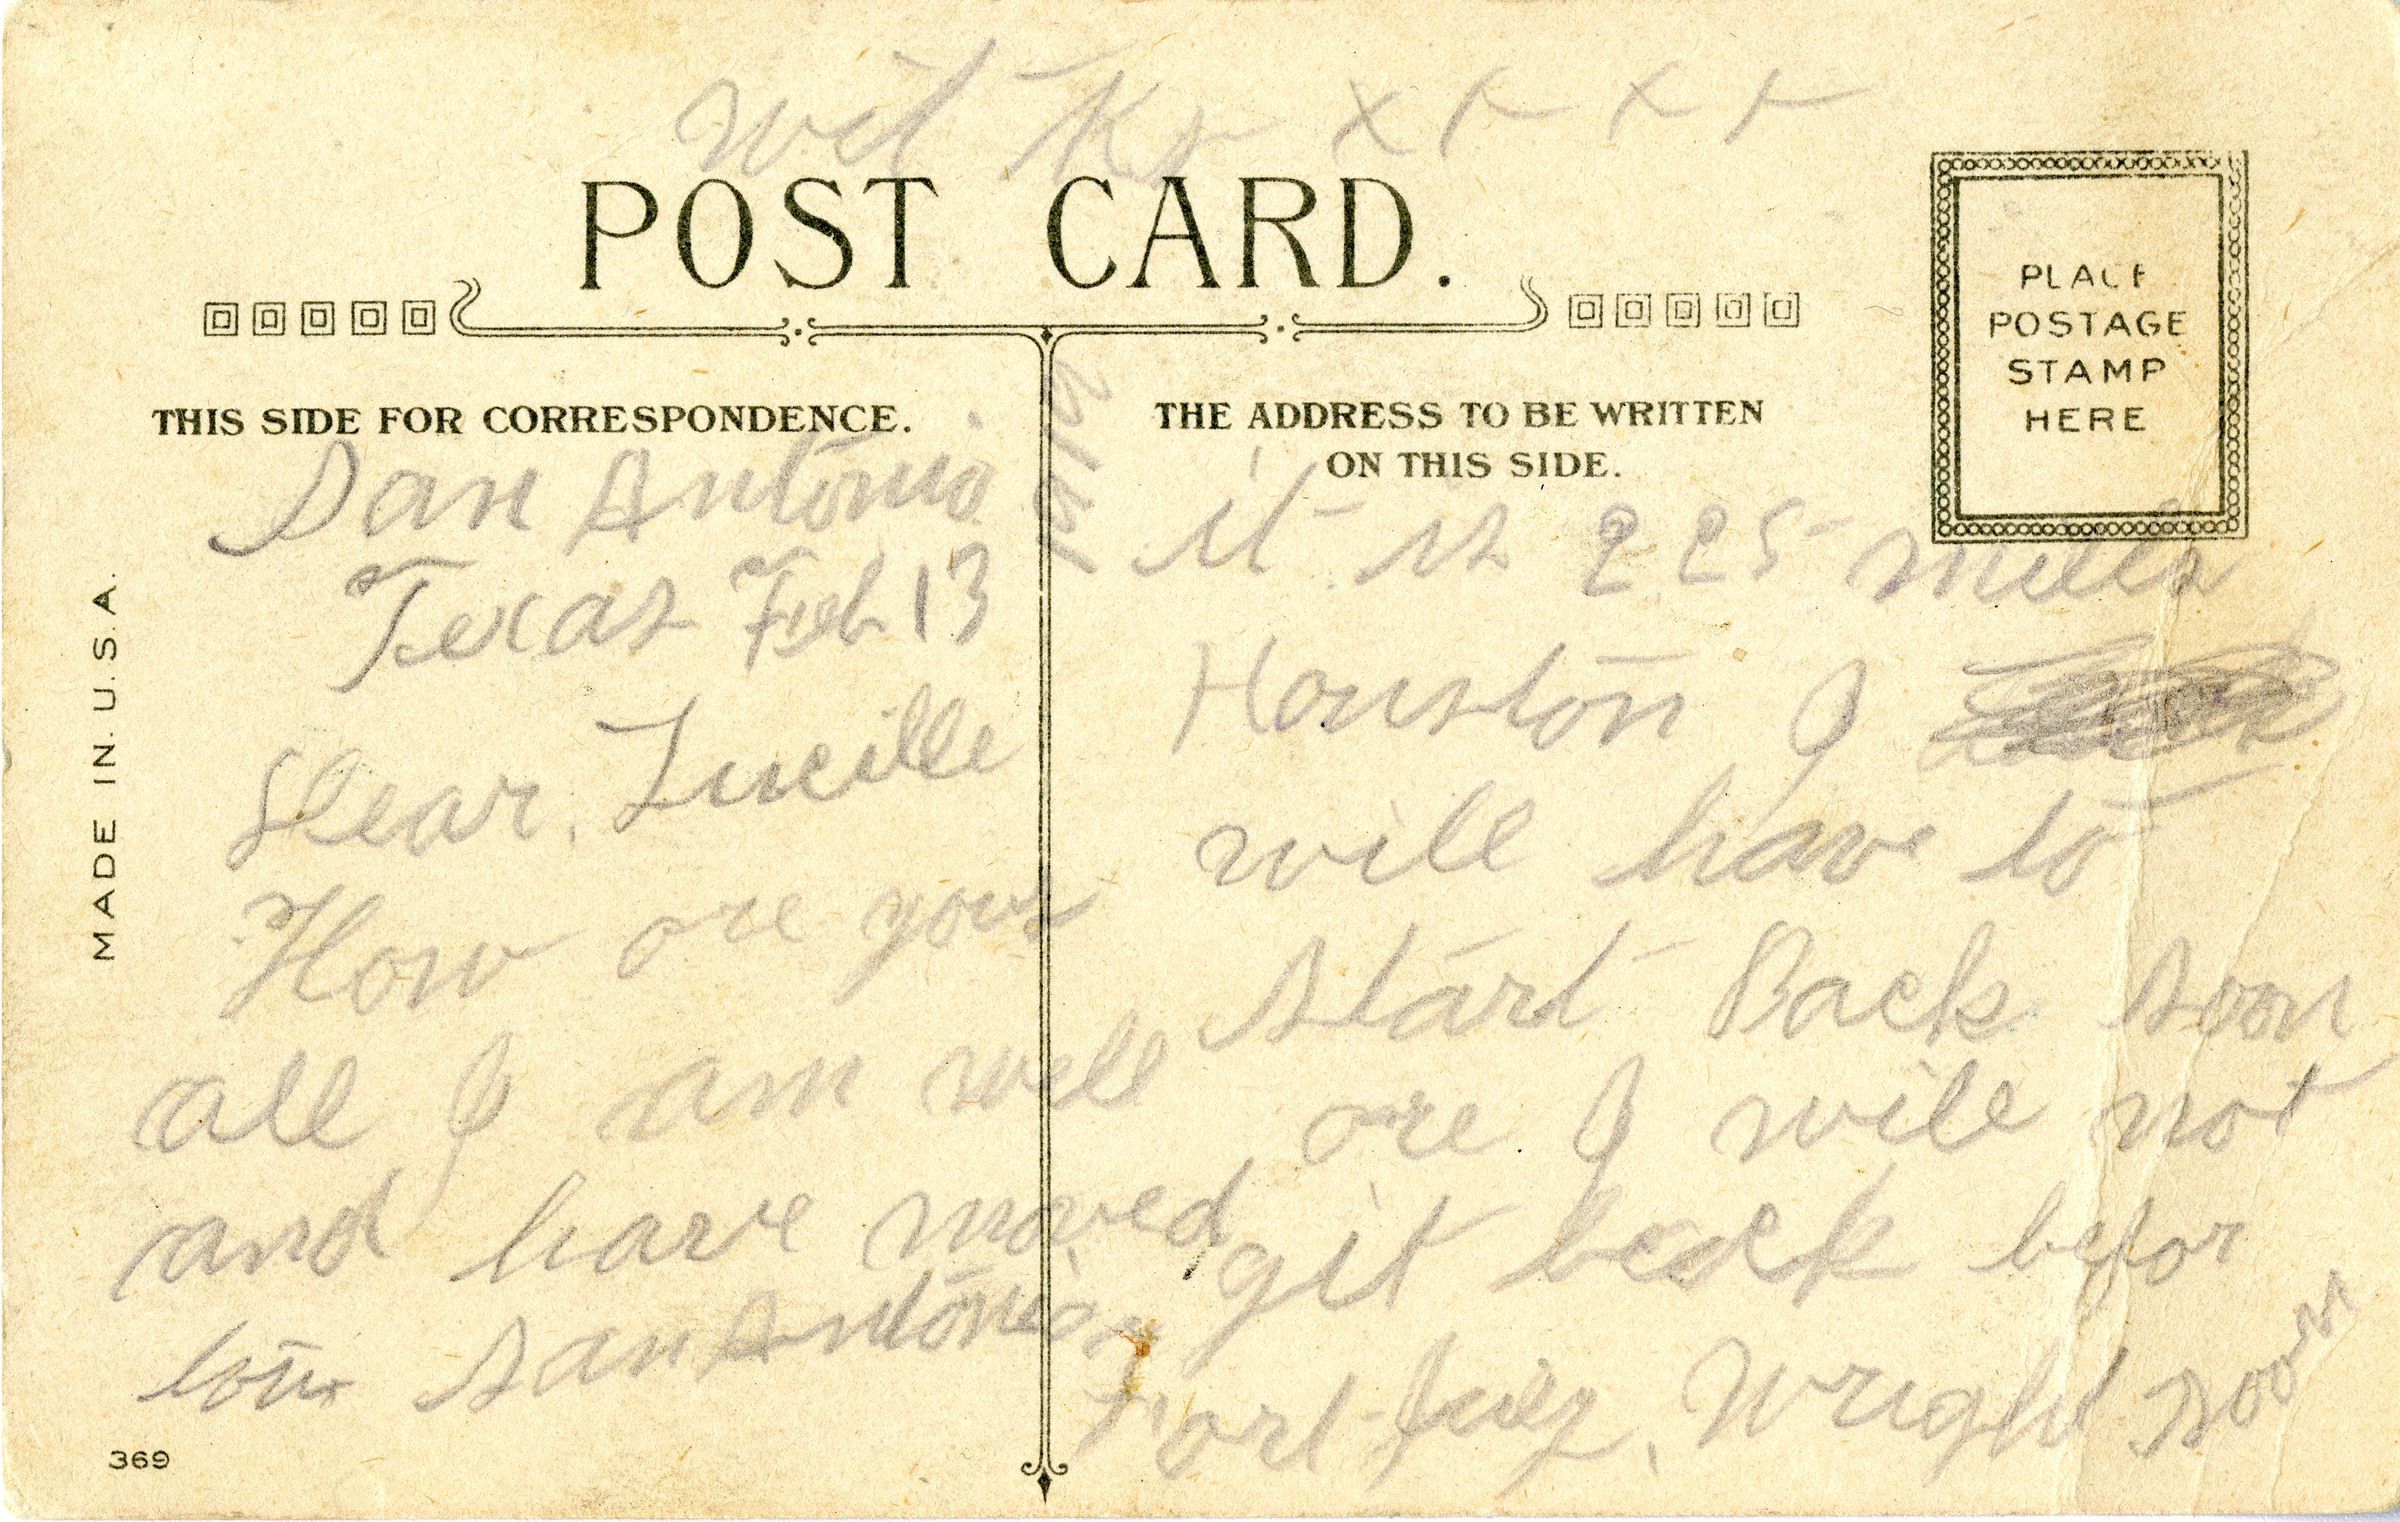 Wit Kx x x x x
POST CARD.
THIS SIDE FOR CORRESPONDENCE.
THE ADDRESS TO BE WRITTEN
ON THIS SIDE.
PLACE
POSTAGE
STAMP
HERE
MADE IN U.S.A.
San Antonio
Texas Feb 13
1912
Dear. Lucille
How are your
all I am well
and have moved
San Antonio
it is 225 miles
Houston I
will have to
start Back soon
ore I will not
git back befor
Wright soon
369